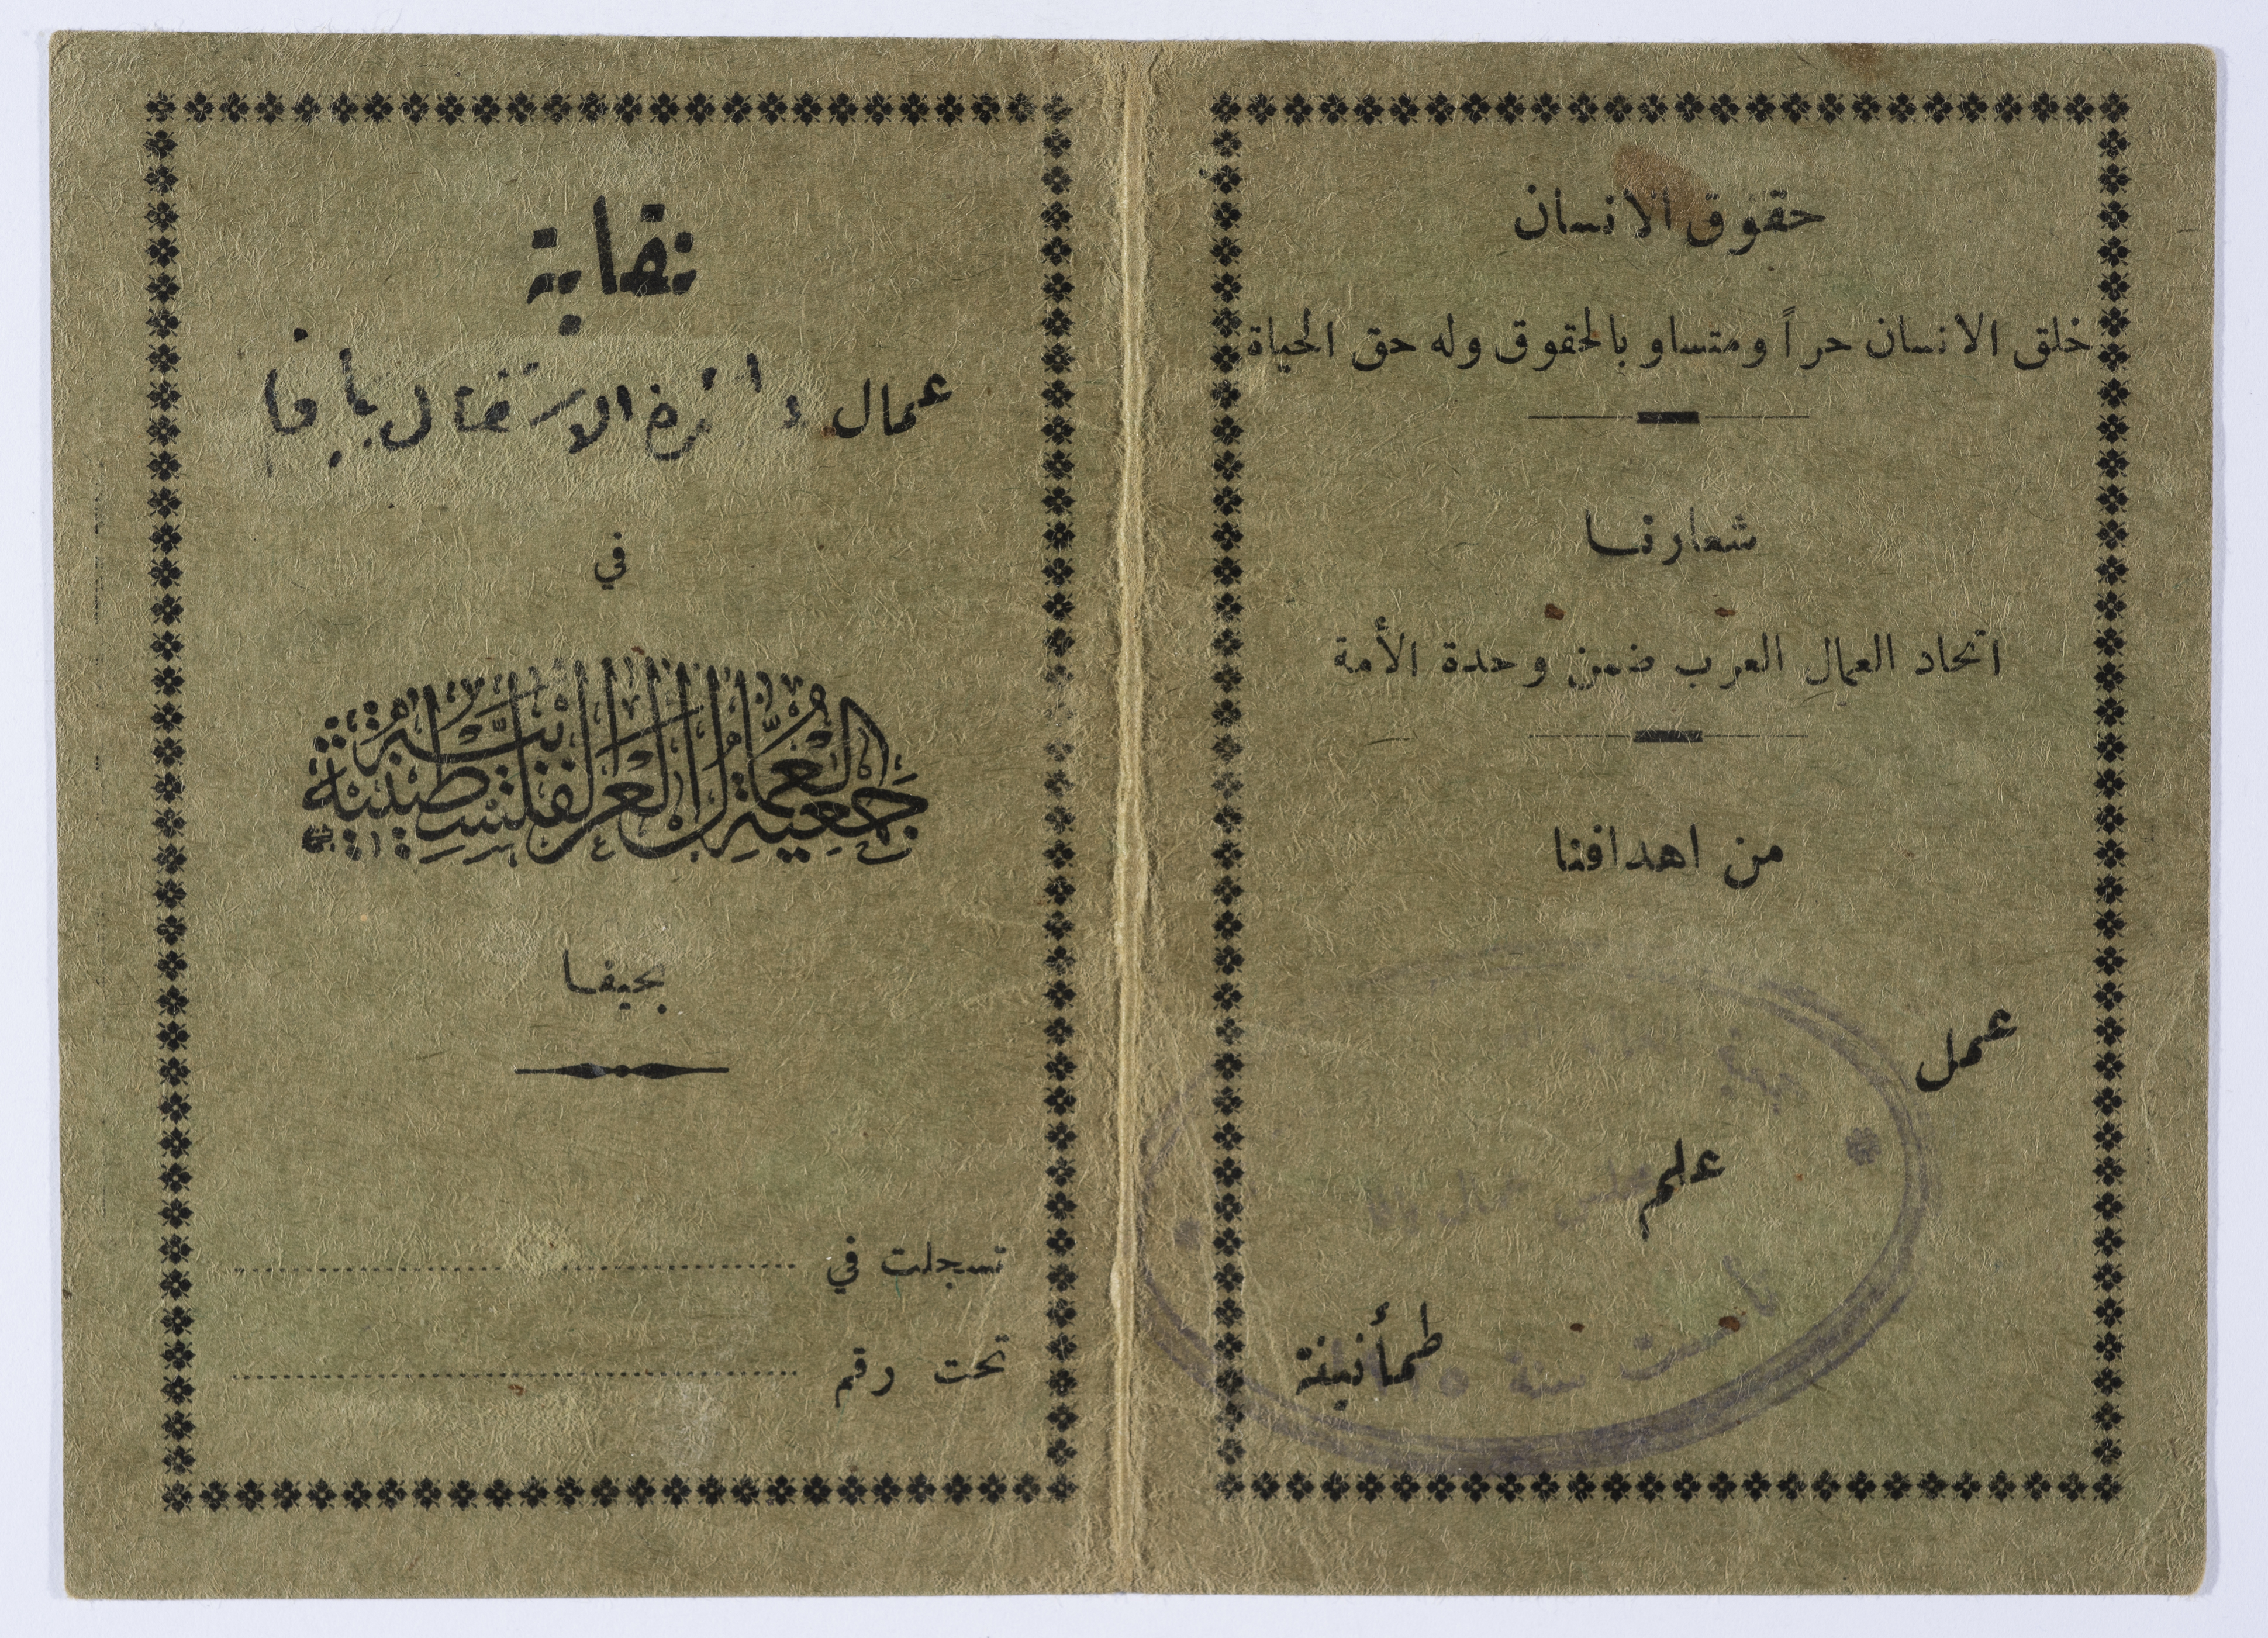 حقوق الانسان
خلق الانسان حراً ومتساو بالحقوق وله حق الحياة
شعارنا
اتحاد العمال العرب ضمن وحدة الأمة
من اهدافنا
عمل
علم
طمأنينة
تأسست سنة
نقابة
عمال دائرة الاشغال بيافا
في
جمعية العمال العربية الفلسطينية
بحيفا
تسجلت في
تحت رقم